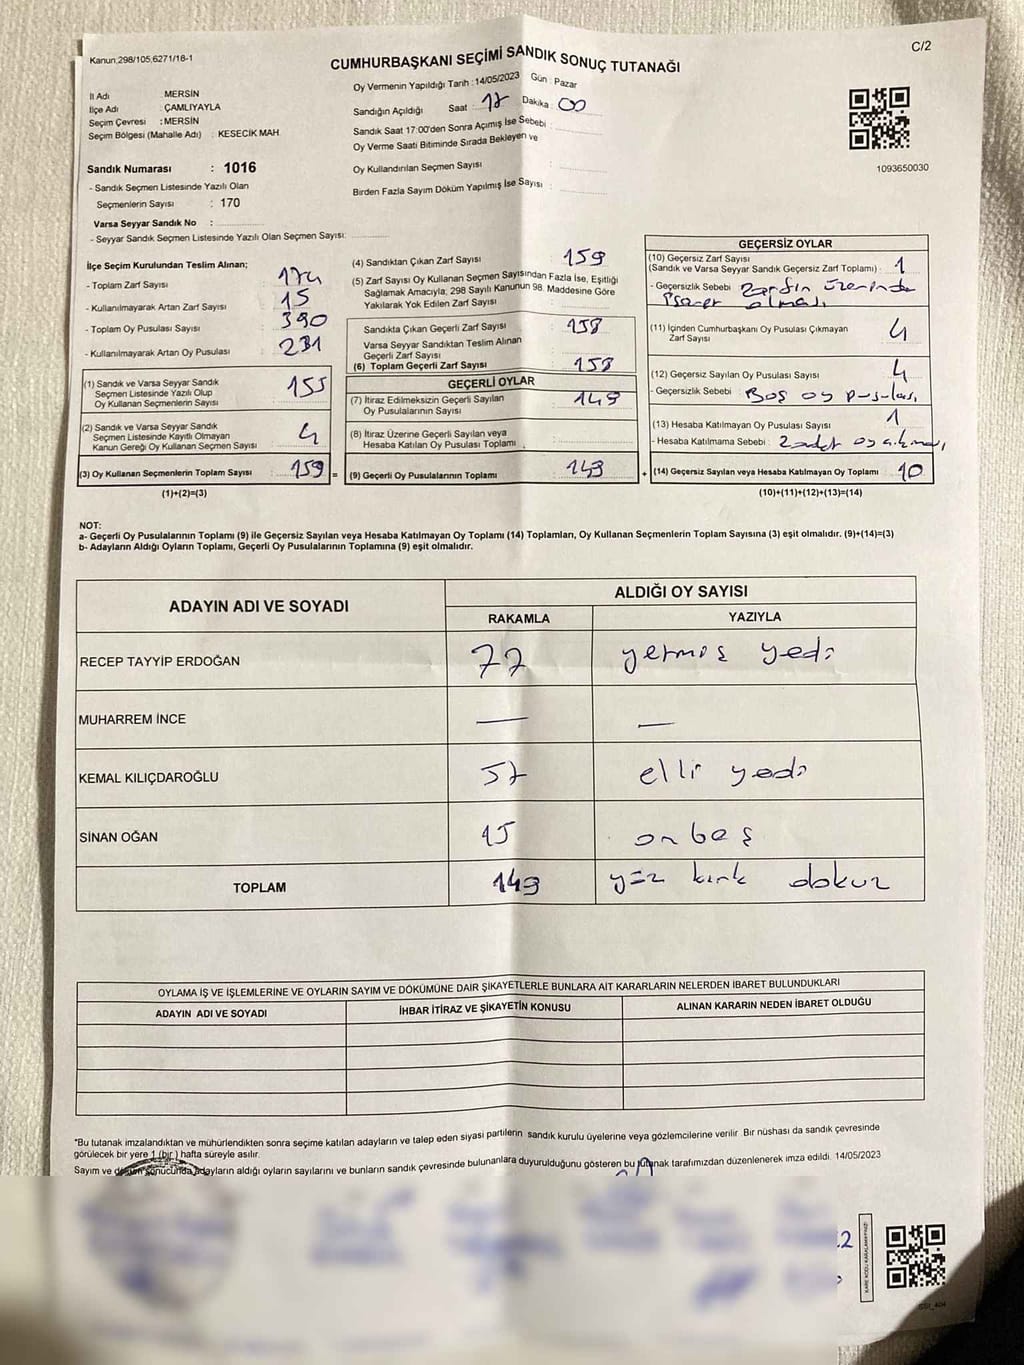 Kanun,298/105,6271/18-1
C/2
CUMHURBAŞKANI SEÇİMİ SANDIK SONUÇ TUTANAĞI
İl Adı : MERSİN
İlçe Adı : ÇAMLIYAYLA
Seçim Çevresi : MERSİN
Seçim Bölgesi (Mahalle Adı) : KESECİK MAH.
Sandık Numarası : 1016
- Sandık Seçmen Listesinde Yazılı Olan
Seçmenlerin Sayısı : 170
Varsa Seyyar Sandık No :
- Seyyar Sandık Seçmen Listesinde Yazılı Olan Seçmen Sayısı:
Oy Vermenin Yapıldığı Tarih : 14/05/2023 Gün : Pazar
Sandığın Açıldığı Saat : 17 Dakika : 00
Sandık Saat 17:00'den Sonra Açımış İse Sebebi :
Oy Verme Saati Bitiminde Sırada Bekleyen ve
Oy Kullandırılan Seçmen Sayısı :
Birden Fazla Sayım Döküm Yapılmış İse Sayısı :
1093650030
İlçe Seçim Kurulundan Teslim Alınan;
- Toplam Zarf Sayısı : 174
- Kullanılmayarak Artan Zarf Sayısı : 15
- Toplam Oy Pusulası Sayısı : 390
- Kullanılmayarak Artan Oy Pusulası : 231
(1) Sandık ve Varsa Seyyar Sandık
Seçmen Listesinde Yazılı Olup
Oy Kullanan Seçmenlerin Sayısı : 155
(2) Sandık ve Varsa Seyyar Sandık
Seçmen Listesinde Kayıtlı Olmayan
Kanun Gereği Oy Kullanan Seçmen Sayısı : 4
(3) Oy Kullanan Seçmenlerin Toplam Sayısı : 159 =
(1)+(2)=(3)
(4) Sandıktan Çıkan Zarf Sayısı : 159
(5) Zarf Sayısı Oy Kullanan Seçmen Sayısından Fazla İse, Eşitliği
Sağlamak Amacıyla, 298 Sayılı Kanunun 98. Maddesine Göre
Yakılarak Yok Edilen Zarf Sayısı :
Sandıkta Çıkan Geçerli Zarf Sayısı : 158
Varsa Seyyar Sandıktan Teslim Alınan
Geçerli Zarf Sayısı :
(6) Toplam Geçerli Zarf Sayısı : 158
GEÇERLİ OYLAR
(7) İtiraz Edilmeksizin Geçerli Sayılan
Oy Pusulalarının Sayısı : 149
(8) İtiraz Üzerine Geçerli Sayılan veya
Hesaba Katılan Oy Pusulası Toplamı :
(9) Geçerli Oy Pusulalarının Toplamı : 149 +
GEÇERSİZ OYLAR
(10) Geçersiz Zarf Sayısı
(Sandık ve Varsa Seyyar Sandık Geçersiz Zarf Toplamı) : 1
- Geçersizlik Sebebi : Zarfın üzerinde
işaret olması
(11) İçinden Cumhurbaşkanı Oy Pusulası Çıkmayan
Zarf Sayısı : 4
(12) Geçersiz Sayılan Oy Pusulası Sayısı : 4
- Geçersizlik Sebebi : Boş oy pusulası
(13) Hesaba Katılmayan Oy Pusulası Sayısı : 1
- Hesaba Katılmama Sebebi : 2 adet oy çıkması
(14) Geçersiz Sayılan veya Hesaba Katılmayan Oy Toplamı : 10
(10)+(11)+(12)+(13)=(14)
NOT:
a- Geçerli Oy Pusulalarının Toplamı (9) ile Geçersiz Sayılan veya Hesaba Katılmayan Oy Toplamı (14) Toplamları, Oy Kullanan Seçmenlerin Toplam Sayısına (3) eşit olmalıdır. (9)+(14)=(3)
b- Adayların Aldığı Oyların Toplamı, Geçerli Oy Pusulalarının Toplamına (9) eşit olmalıdır.
ADAYIN ADI VE SOYADI
ALDIĞI OY SAYISI
RAKAMLA YAZIYLA
RECEP TAYYİP ERDOĞAN 77 yetmiş yedi
MUHARREM İNCE — —
KEMAL KILIÇDAROĞLU 57 elli yedi
SİNAN OĞAN 15 on beş
TOPLAM 149 yüz kırk dokuz
OYLAMA İŞ VE İŞLEMLERİNE VE OYLARIN SAYIM VE DÖKÜMÜNE DAİR ŞİKAYETLERLE BUNLARA AİT KARARLARIN NELERDEN İBARET BULUNDUKLARI
ADAYIN ADI VE SOYADI İHBAR İTİRAZ VE ŞİKAYETİN KONUSU ALINAN KARARIN NEDEN İBARET OLDUĞU
*Bu tutanak imzalandıktan ve mühürlendikten sonra seçime katılan adayların ve talep eden siyasi partilerin sandık kurulu üyelerine veya gözlemcilerine verilir. Bir nüshası da sandık çevresinde
görülecek bir yere 1 (bir ) hafta süreyle asılır.
Sayım ve döküm sonucunda adayların aldığı oyların sayılarını ve bunların sandık çevresinde bulunanlara duyurulduğunu gösteren bu tutanak tarafımızdan düzenlenerek imza edildi. 14/05/2023
KARE KODU KARALAMAYINIZ!